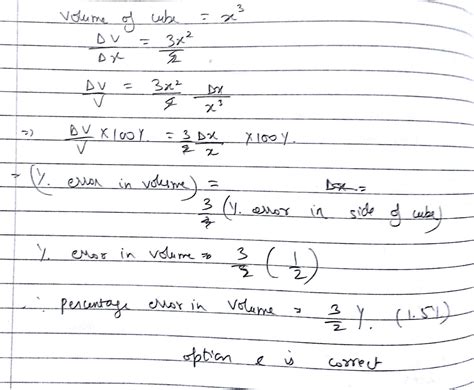 Volume of cube = x³
ΔV/Δx = 3x²/2
ΔV/V = 3x²/2 Δx/x³
=> ΔV/V × 100% = 3/2 Δx/x × 100%
(% error in volume) = Δx =
3/2 (% error in side of cube)
% error in volume => 3/2 (1/2)
∴ percentage error in volume = 3/2 %. (1.5%)
option e is correct